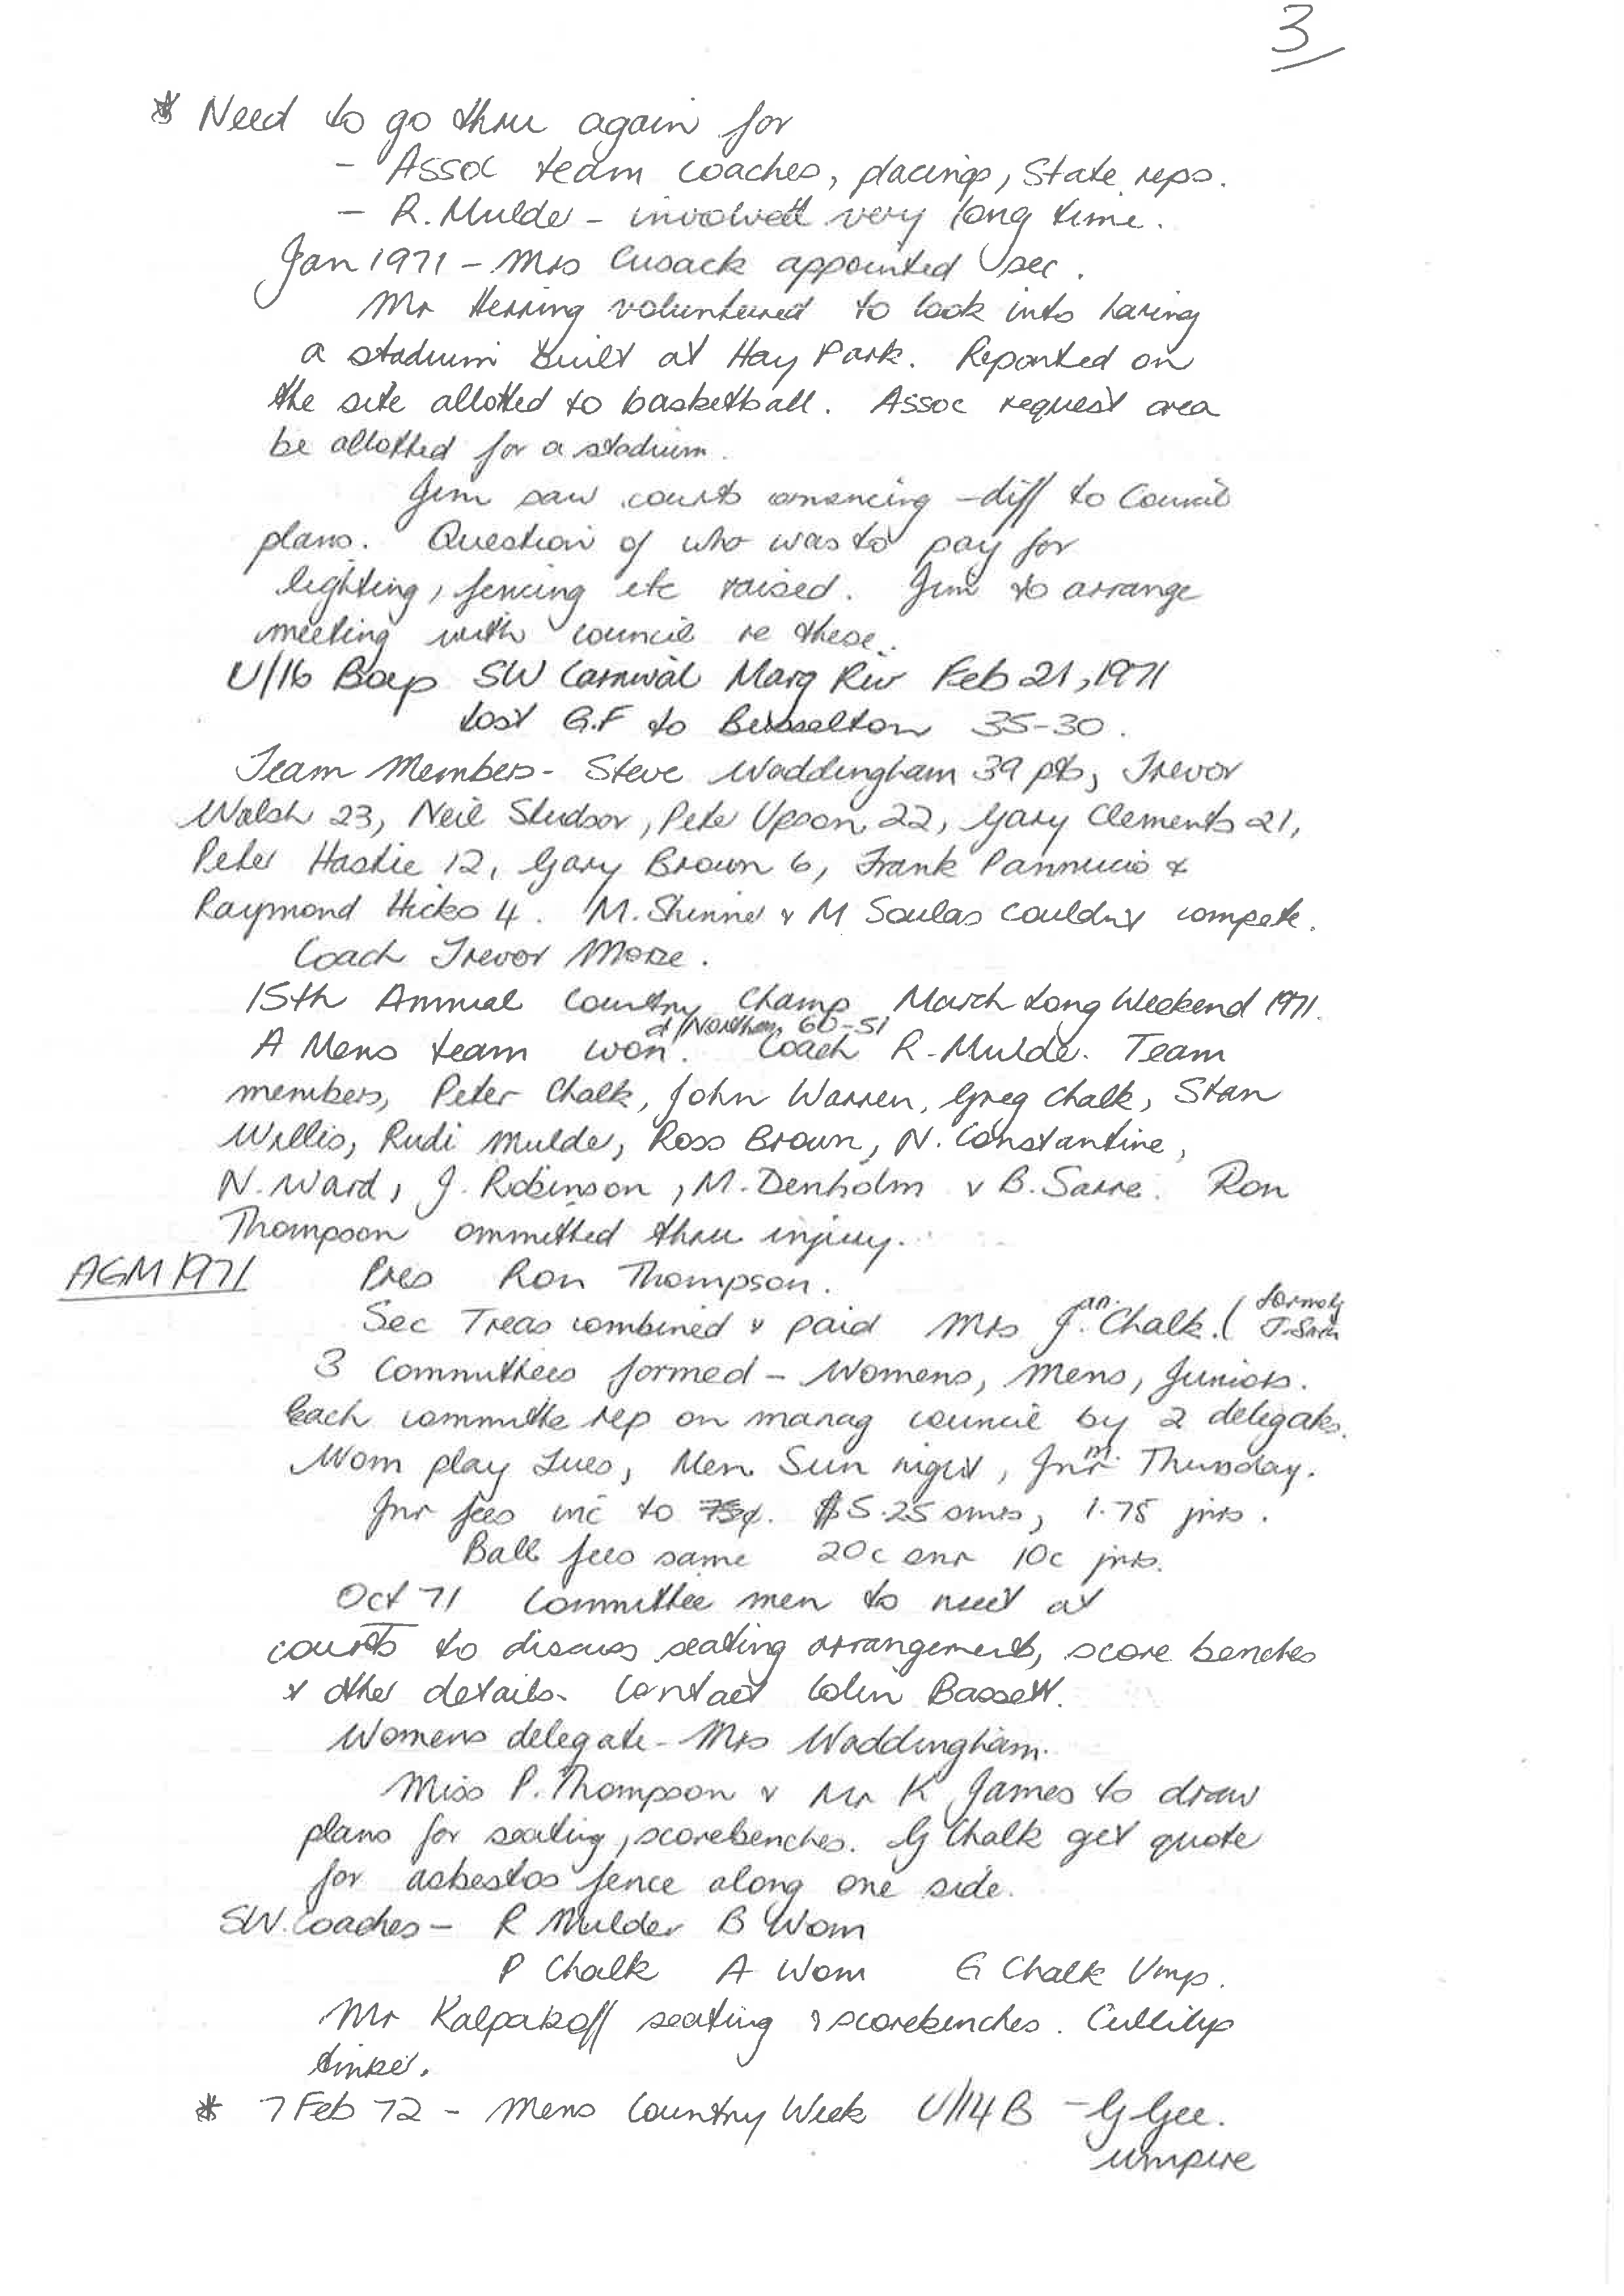 3
* Need to go thru again for
- Assoc team coaches, placings, State reps.
- R. Mulder - involved very long time.
Jan 1971 - Mrs Cusack appointed sec.
Mr Herring volunteered to look into having
a stadium built at Hay Park. Reported on
the site allotted to basketball. Assoc request area
be allotted for a stadium.
Jim saw courts comencing - diff to Council
plans. Question of who was to pay for
lighting, fencing etc raised. Jim to arrange
meeting with council re these.
U/16 Boys SW Carnival Marg Riv Feb 21, 1971
Lost G.F to Busselton 35-30.
Team Members - Steve Waddingham 39 pts, Trevor
Walsh 23, Neil Sludsor, Pete Upson 22, Gary Clements 21,
Peter Hastie 12, Gary Brown 6, Frank Pannucio &
Raymond Hicks 4. M. Skinner & M Soulas couldn't compete.
Coach Trevor More.
15th Annual Country Champ March Long Weekend 1971.
d/Northam 60-51
A Mens team won. Coach R. Mulder. Team
members, Peter Chalk, John Warren, Greg Chalk, Stan
Willis, Rudi Mulder, Ross Brown, N. Constantine,
N. Ward, J. Robinson, M. Denholm & B. Sarre. Ron
Thompson ommitted thru injury.
AGM 1971 Pres Ron Thompson.
Sec Treas combined & paid Mrs Jan. Chalk. (formely
3 Committees formed - Womens, Mens, Juniors.
Each committe rep on manag council by 2 delegates.
Wom play Tues, Men Sun night, Jnr Thursday.
Jnr fees inc to 75¢. $5.25 snrs, 1.75 jnrs.
Ball fees same 20c snr 10c jnrs.
Oct 71 Committee men to meet at
courts to discuss seating arrangements, score benches
& other details. Contact Colin Bassett.
Womens delegate - Mrs Waddingham.
Miss P. Thompson & Mr K James to draw
plans for seating, scorebenches. G Chalk get quote
for asbestos fence along one side.
SW. Coaches - R Mulder B Wom
P Chalk A Wom G Chalk Ump.
Mr Kalpakoff seating & scorebenches. Cullitys
timber.
* 7 Feb 72 - Mens Country Week U/14 B - G Gee.
umpire